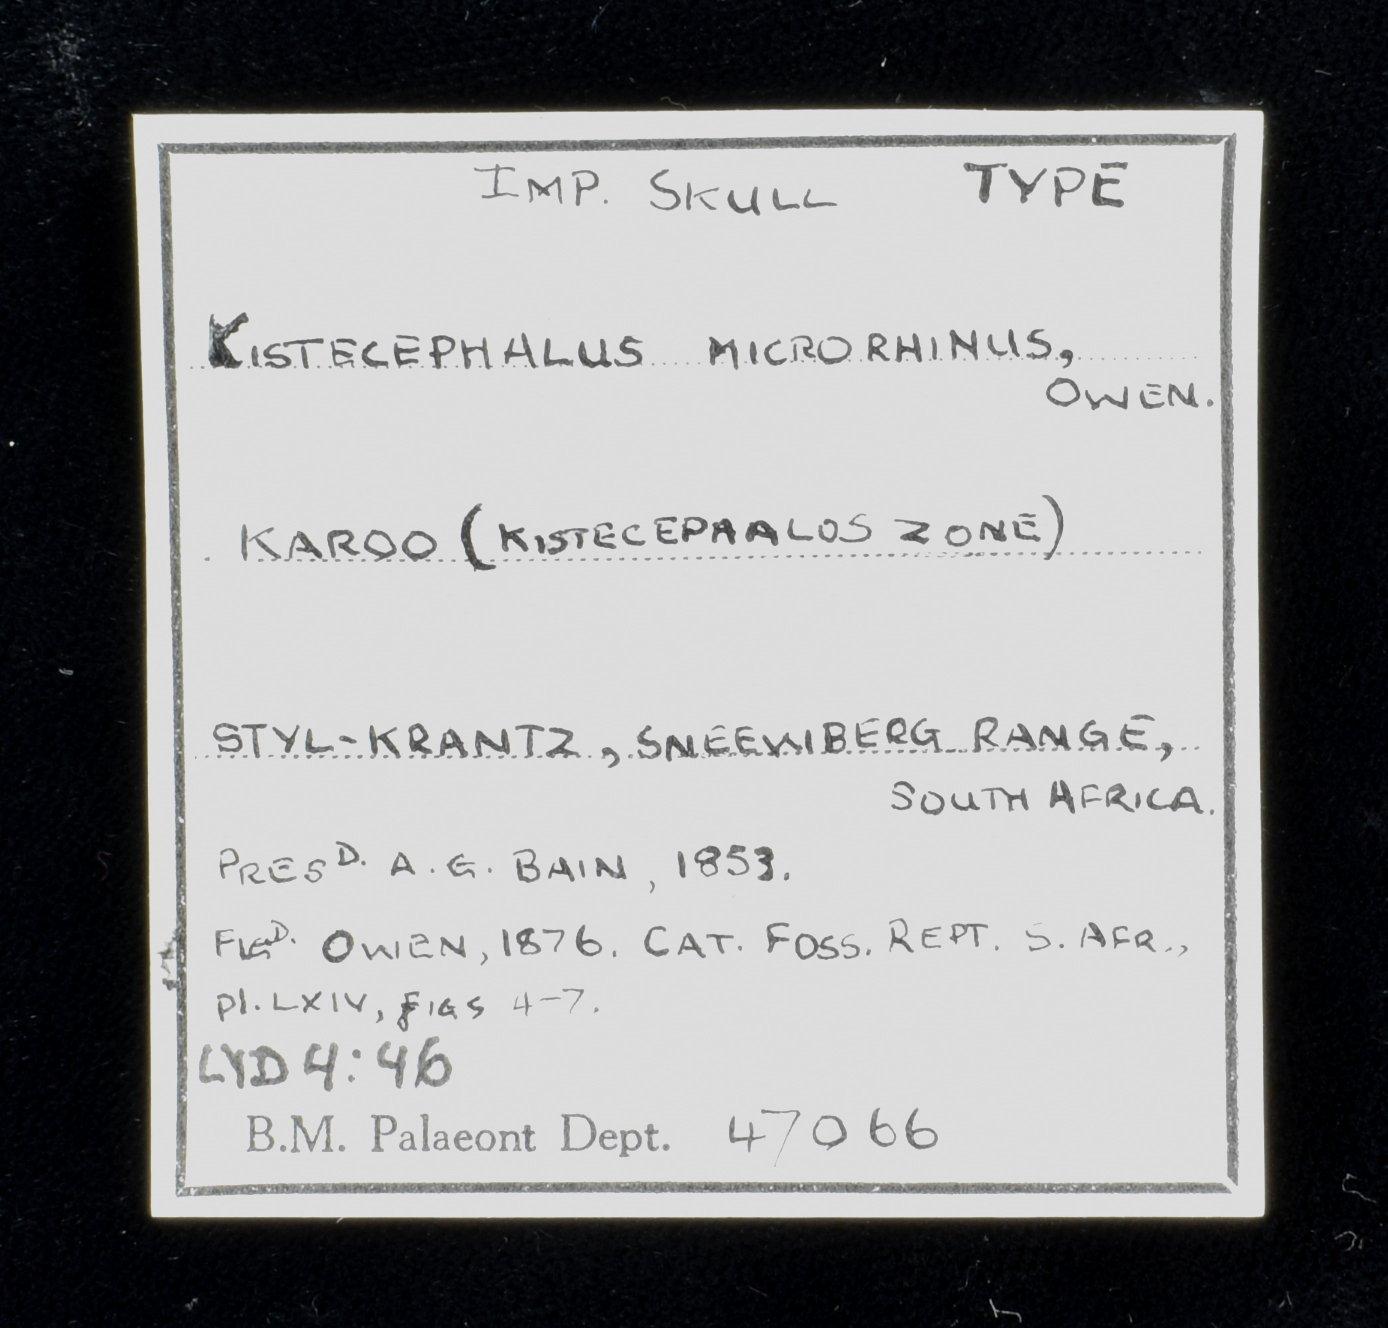 IMP. SKULL TYPE
KISTECEPHALUS MICRORHINUS,
OWEN.
KAROO (KISTECEPHALOS ZONE)
STYL-KRANTZ, SNEEWIBERG RANGE,
SOUTH AFRICA.
PRESD. A.G. BAIN, 1853.
FIGD. OWEN, 1876. CAT. FOSS. REPT. S. AFR.,
pl. LXIV, FIGS 4-7.
LYD 4:46
B.M. Palaeont Dept. 47066